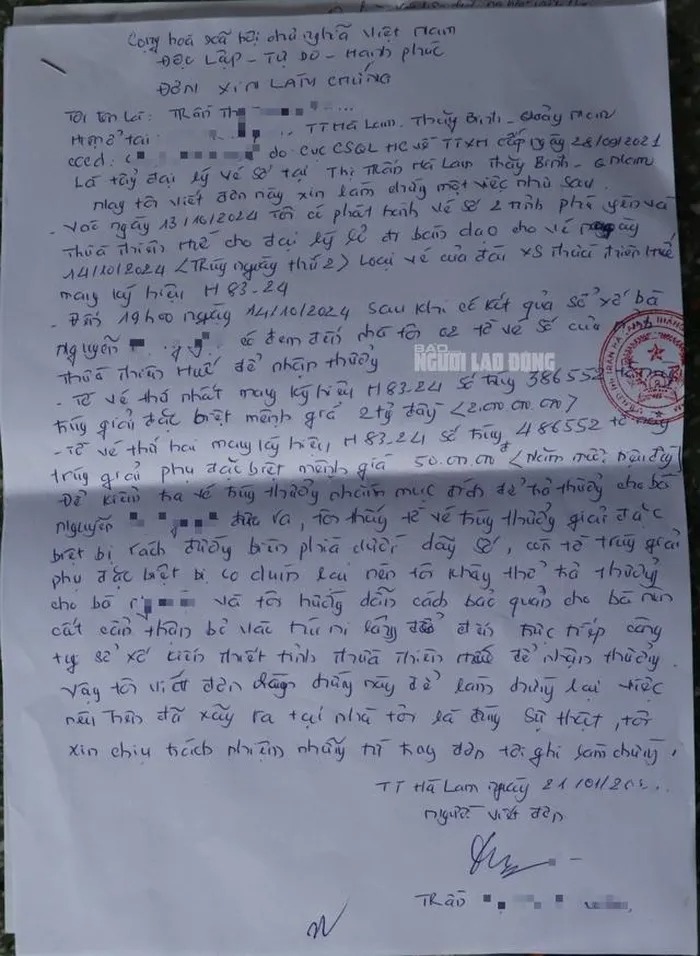 Cộng hoà xã hội chủ nghĩa Việt Nam
Độc Lập - Tự Do - Hạnh phúc
ĐƠN XIN LÀM CHỨNG
Tôi tên là: Trần Th
Hiện ở tại TT Hà Lam. Thăng Bình - Quảng Nam
cccd: do CỤC CSQL HC về TTXH cấp ngày 28/09/2021
Là tổng đại lý vé số tại Thị Trấn Hà Lam Thăng Bình - Q Nam
Nay tôi viết đơn này xin làm chứng một việc như sau.
- Vào ngày 13/10/2024 Tôi có phát hành vé số 2 tỉnh phú yên và
Thừa thiên Huế cho đại lý lẻ đi bán dạo cho vé ngày
14/10/2024 <Trúng ngày thứ 2> Loại vé của đài XS Thừa thiên Huế
mang ký hiệu H 83-24
- Đến 19h00 ngày 14/10/2024 sau khi có kết quả sổ xố bà
nguyễn có đem đến nhà tôi 02 tờ vé số của
Thừa thiên Huế để nhận thưởng
BÁO
NGƯỜI LAO ĐỘNG
- Tờ vé thứ nhất mang ký hiệu H 83-24 số trúng 386552
trúng giải đặc biệt mệnh giá 2 tỷ đồng <2.000.000.000>
- Tờ vé thứ hai mang ký hiệu H 83-24 số trúng 486552 tờ này
trúng giải phụ đặc biệt mệnh giá 50.000.000đ <năm mươi triệu đồng>
Để kiểm tra vé trúng thưởng nhằm mục đích để trả thưởng cho bà
nguyễn được ra, tôi thấy tờ vé trúng thưởng giải đặc
biệt bị rách đường biên phía dưới dãy số, còn tờ trúng giải
phụ đặc biệt bị co dúm lại nên tôi không thể trả thưởng
cho bà và tôi hướng dẫn cách bảo quản cho bà nên
cất cẩn thận bỏ vào túi ni lông để đến trực tiếp công
ty sổ xố kiến thiết tỉnh thừa thiên Huế để nhận thưởng
Vậy tôi viết đơn chứng này để làm chứng lại việc
nêu trên đã xảy ra tại nhà tôi là đúng sự thật, tôi
xin chịu trách nhiệm những gì trong đơn tôi ghi làm chứng.
TT Hà Lam ngày 21/01/20
người viết đơn
Trần